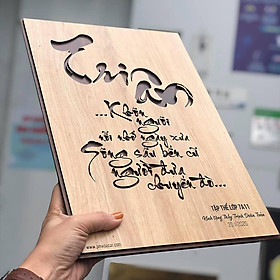 Tri Ân
...Khôn người
nổi nhớ ngày xưa
Sông sâu bến cũ
người đưa
chuyến đò...
TẬP THỂ LỚP 7A11
Kính tặng Thầy Trịnh Doãn Tuấn
20-11-2020